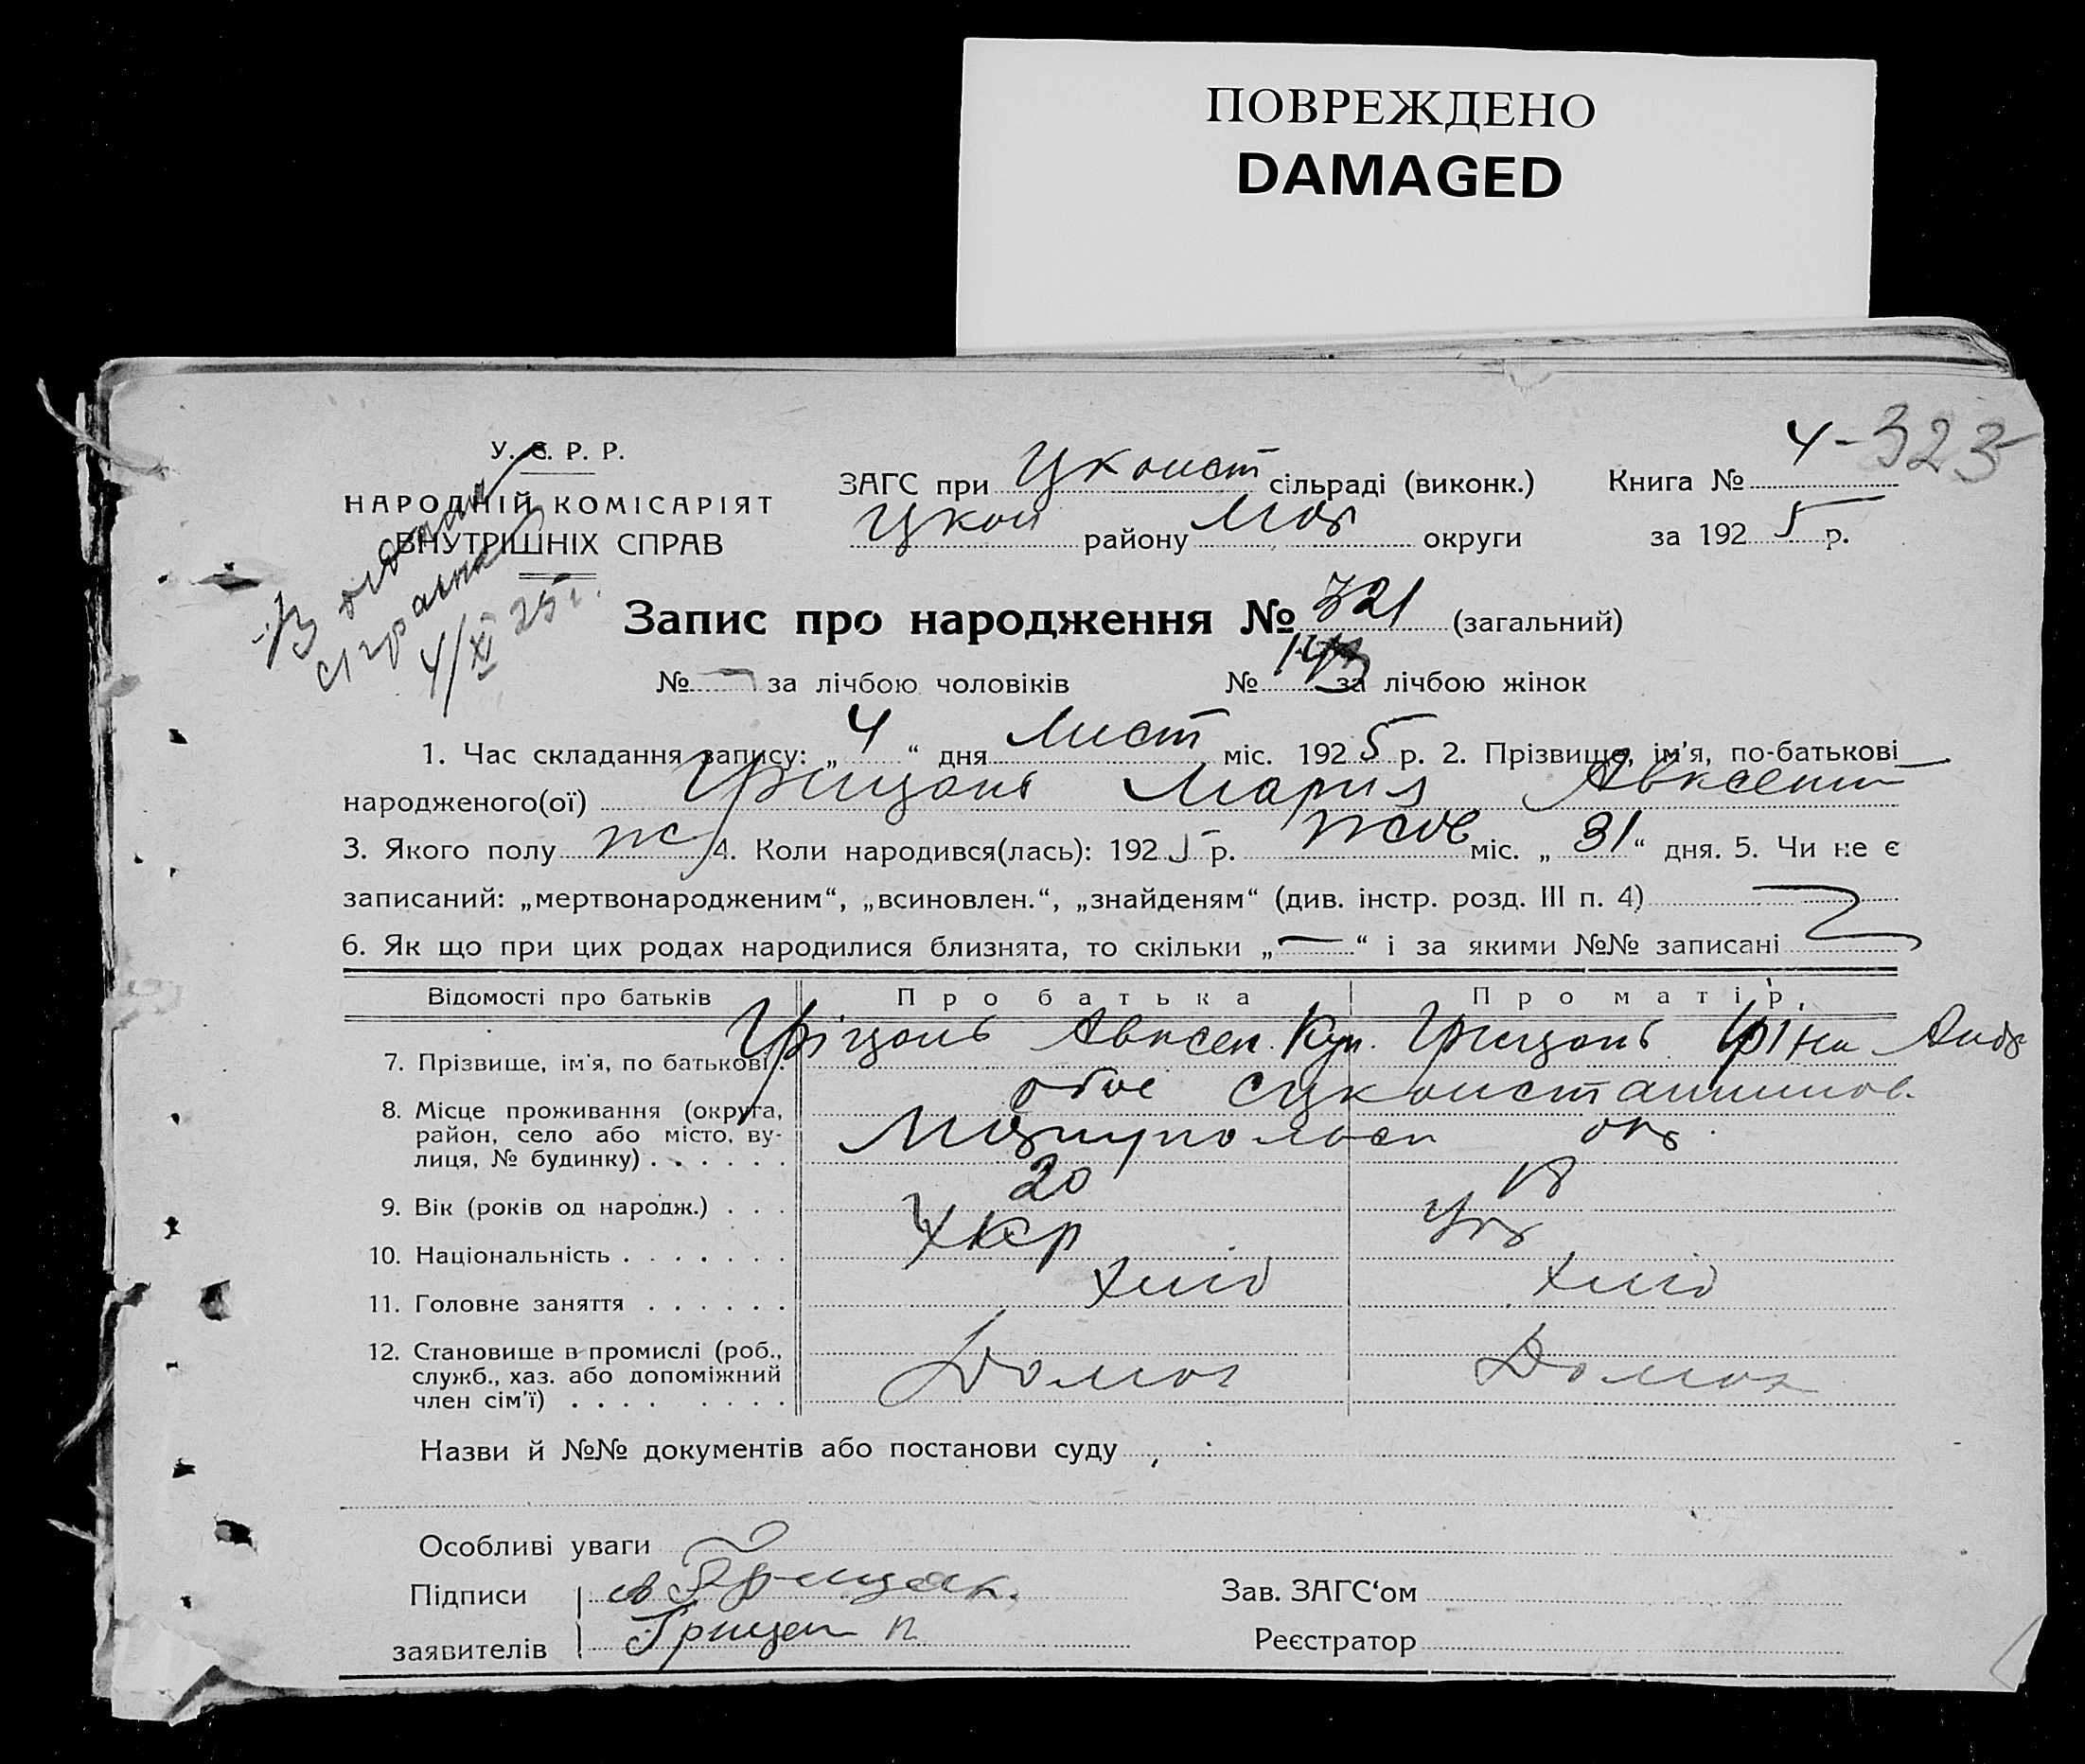 ПОВРЕЖДЕНО
DAMAGED
4-323
У. С. Р. Р.
НАРОДНІЙ КОМІСАРІЯТ
ВНУТРІШНІХ СПРАВ
ЗАГС при Цконст сільраді (виконк.) Книга №
Цкон району Мар округи за 1925 р.
4/XI 25 г.
Запис про народження № 321 (загальний)
№ за лічбою чоловіків № за лічбою жінок
1. Час складання запису: „4“ дня Лист міс. 1925 р. 2. Прізвище, ім'я, по-батькові
народженого(ої) Грицань Мария Авксент
3. Якого полу ж 4. Коли народився(лась): 1925 р. жов міс. „31“ дня. 5. Чи не є
записаний: „мертвонародженим“, „всиновлен.“, „знайденям“ (див. інстр. розд. III п. 4)
6. Як що при цих родах народилися близнята, то скільки „—“ і за якими №№ записані
Відомості про батьків Про батька Про матір
7. Прізвище, ім'я, по батькові Гріцань Авксен. Грицань Андр
8. Місце проживання (округа, обоє
район, село або місто, ву- Маріупольськ окр.
лиця, № будинку)
9. Вік (років од народж.) 20 18
10. Національність Укр Укр
11. Головне заняття Хліб Хліб
12. Становище в промислі (роб.,
служб., хаз. або допоміжний Домог Домог
член сім'ї)
Назви й №№ документів або постанови суду
Особливі уваги
Підписи Грицан. Зав. ЗАГС'ом
заявителів Грицан П Реєстратор